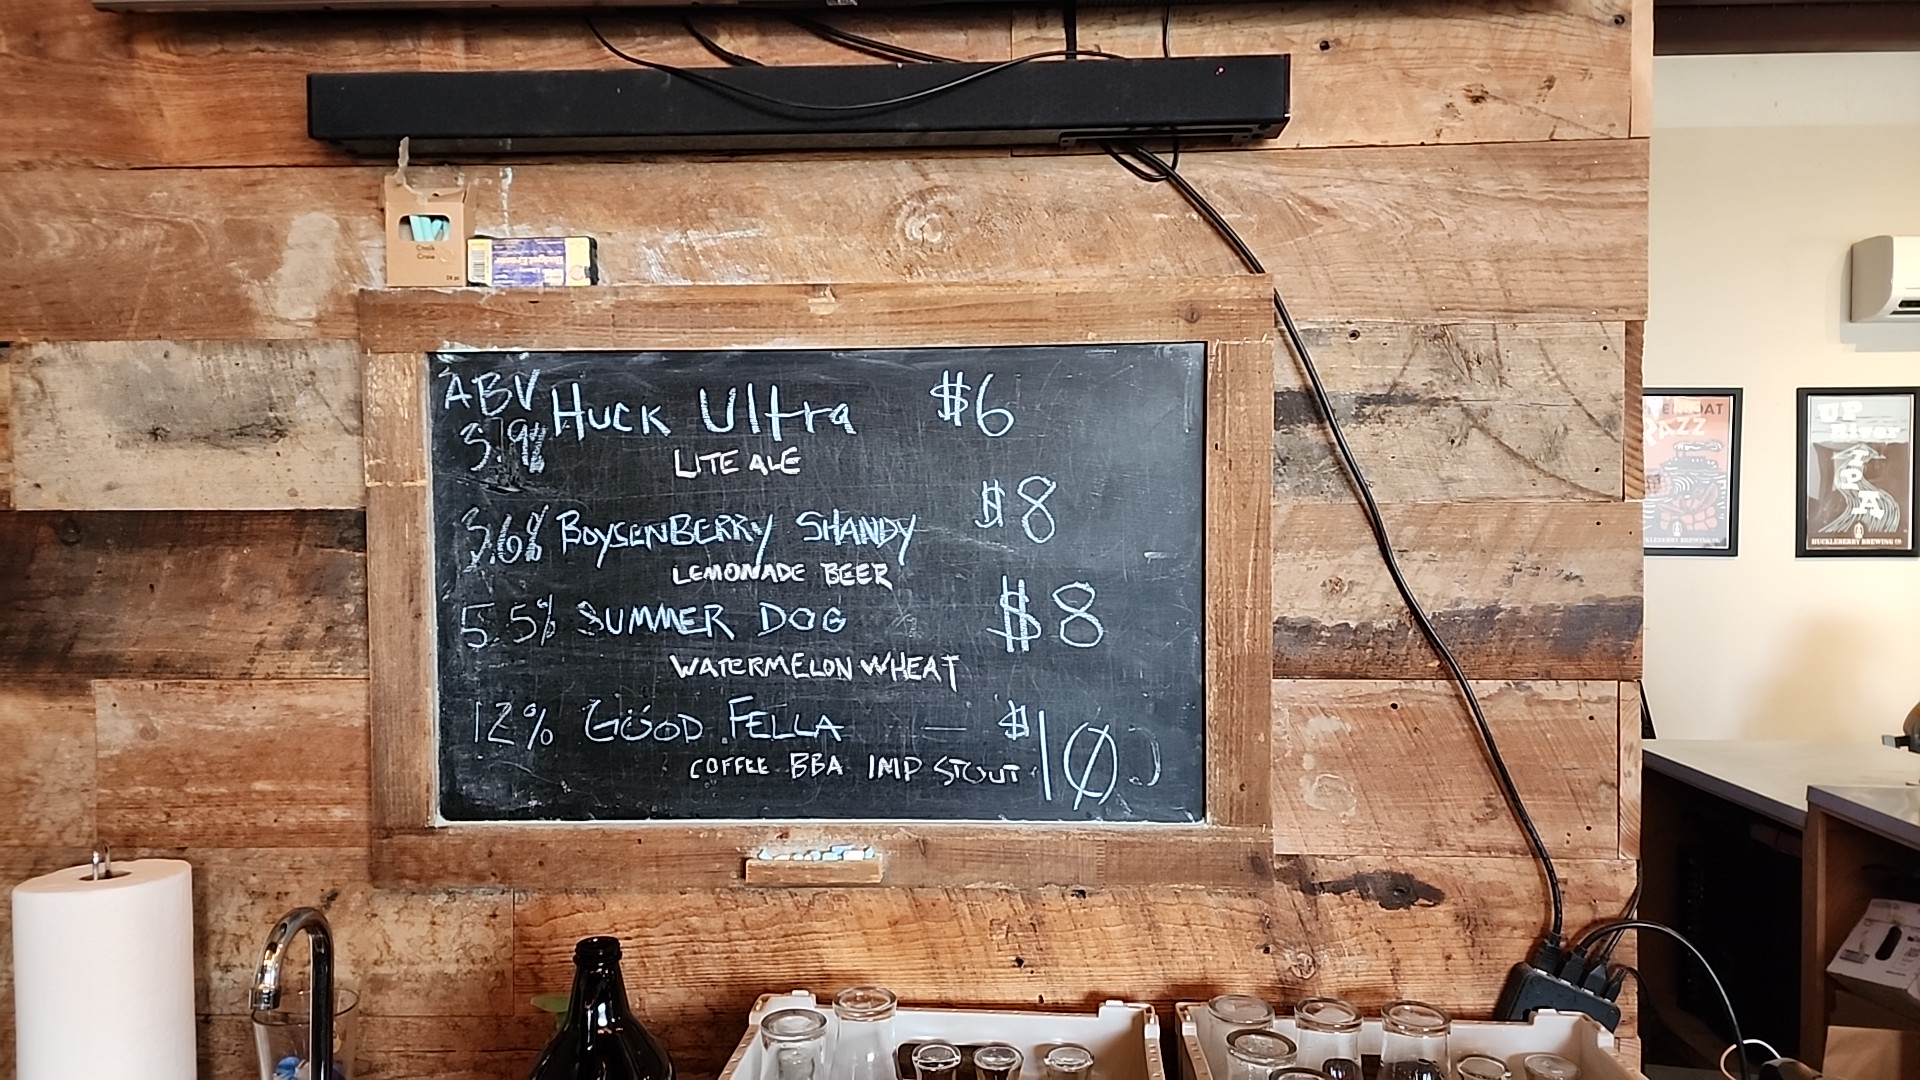 Chalk
Craie
ABV
HUCK Ultra $6
3.9%
LITE ALE
3.6% BOYSENBERRY SHANDY $8
LEMONADE BEER
5.5% SUMMER DOG $8
WATERMELON WHEAT
12% GÜOD FELLA — $10
COFFEE BBA IMP STOUT
RAZZ
HUCKLEBERRY BREWING CO.
UP
River
IPA